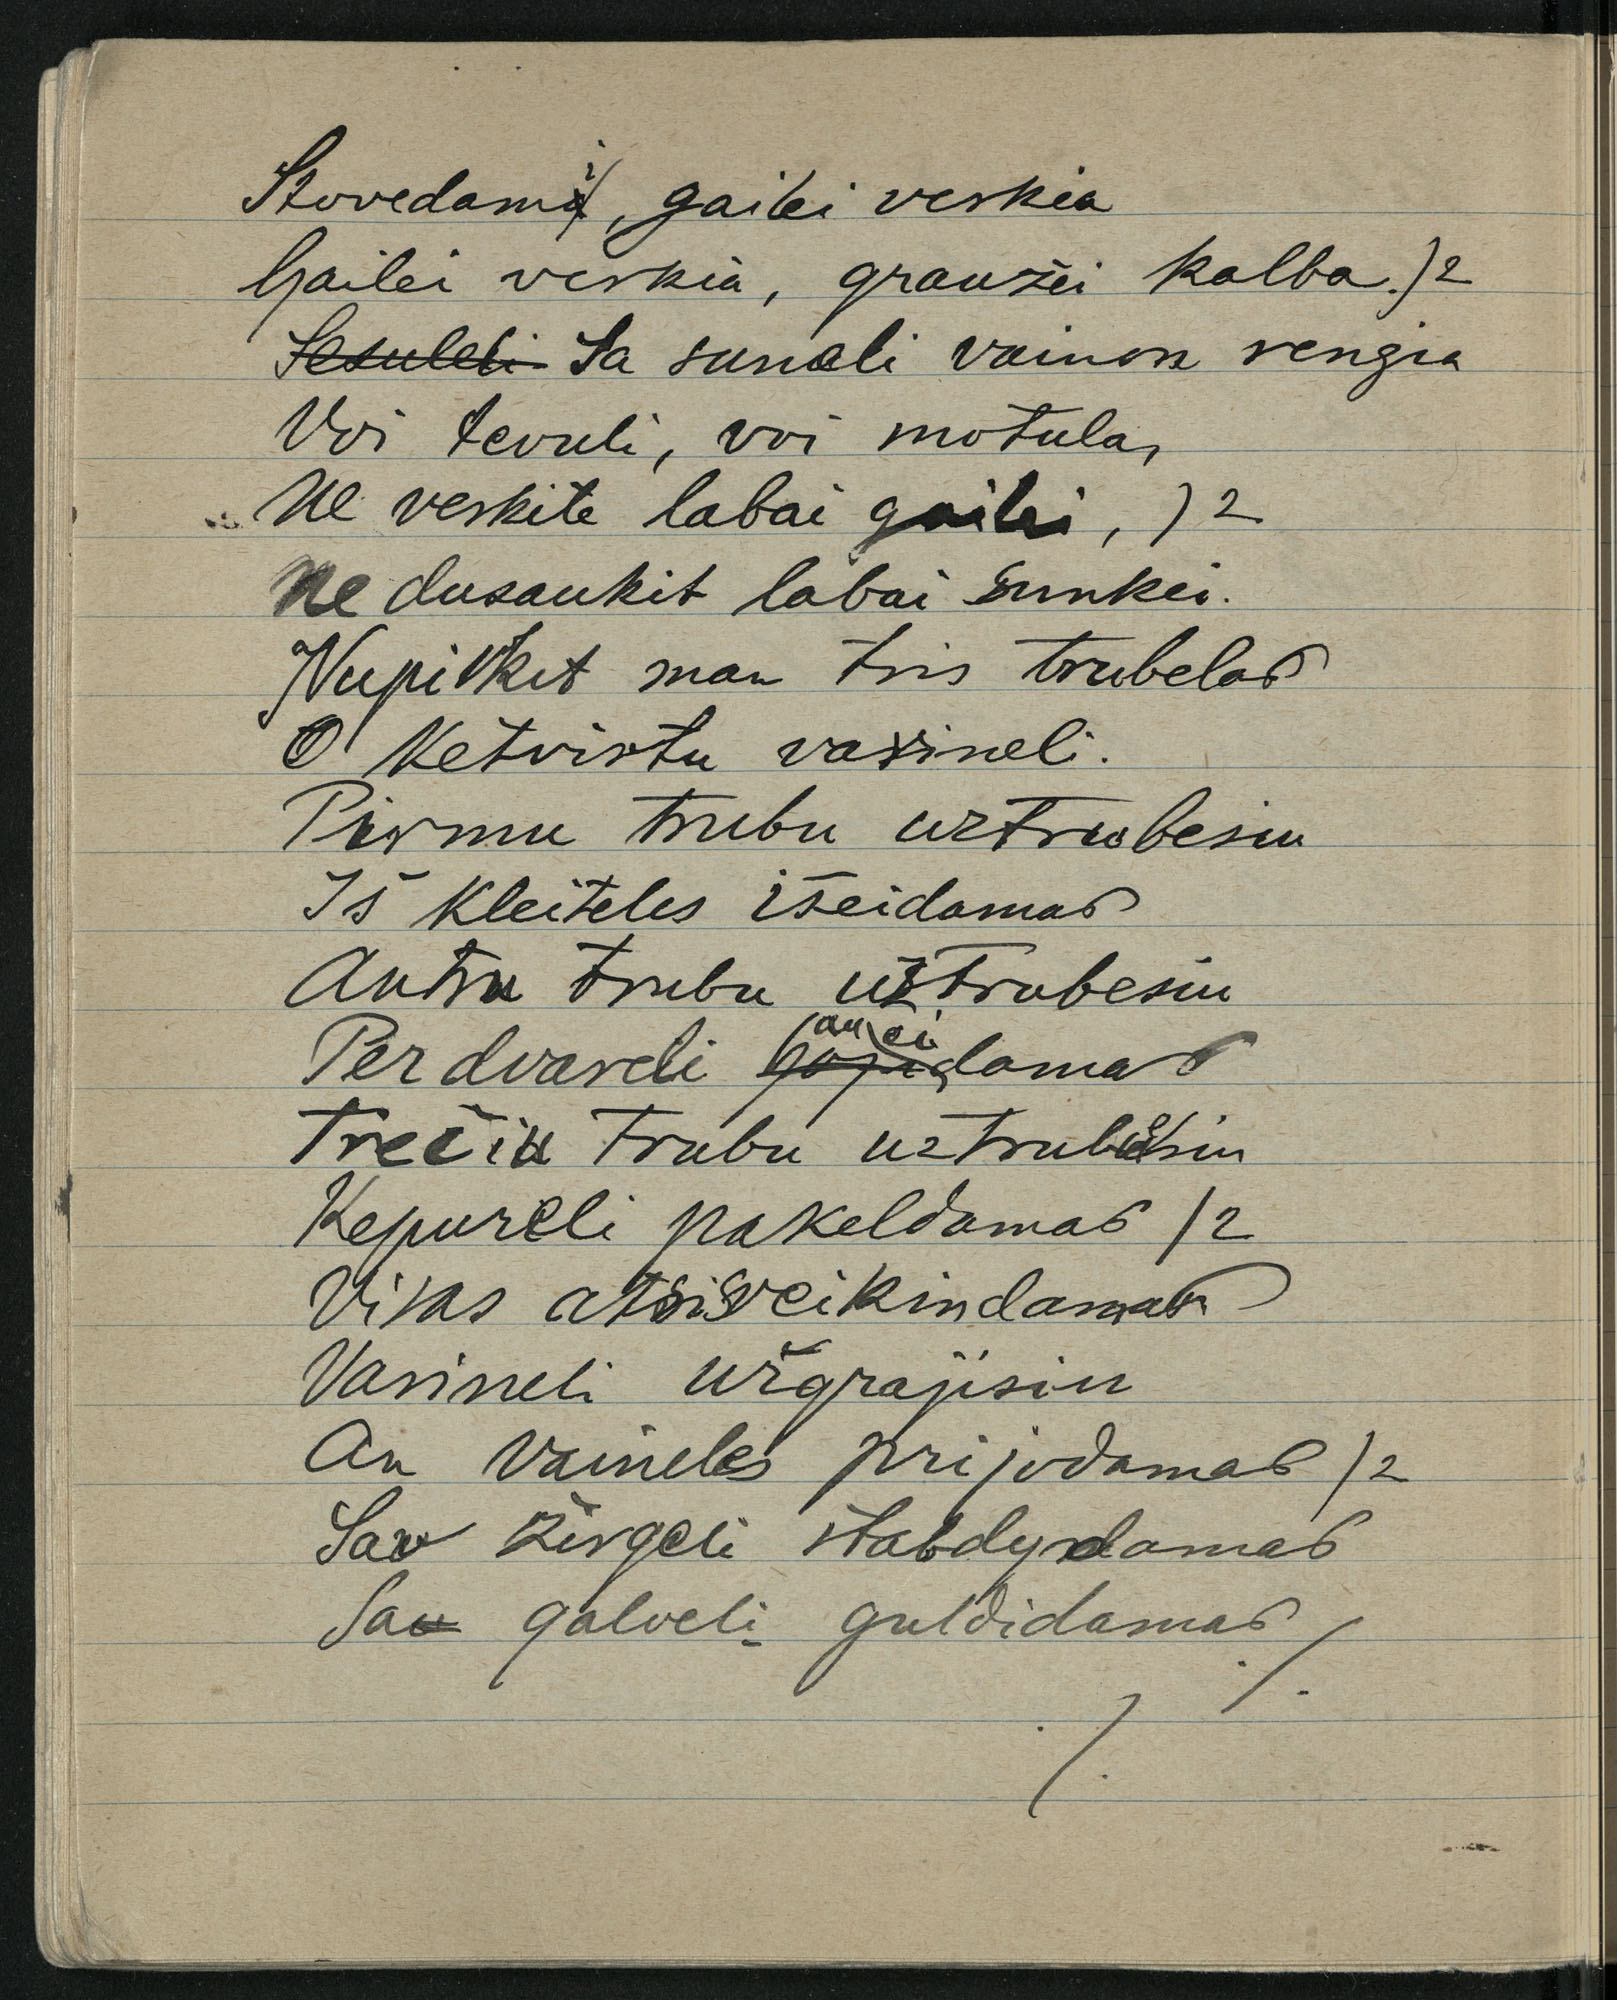 Stovedami, gailei verkia
Gailei verkia, graužei kalba. )2
Sesuleli Sa suneli vainon rengia
Voi tevuli, voi motula,
Ne verkite labai gailei, )2
Ne dusaukit labai sunkei.
Nupirkit man tris trubelas
O ketvirtu varineli.
Pirmu trubu uztrubesiu
Iš kleiteles išeidamas
Antru trubu užtrubesiu
Per dvareli eidamas
Trečiu trubu uztrubesiu
Kepureli pakeldamas )2
Visas atsisveikindamas
Varineli užgrajisiu
An vaineles prijodamas )2
Sav žirgeli stabdydamas
Sau galveli guldidamas